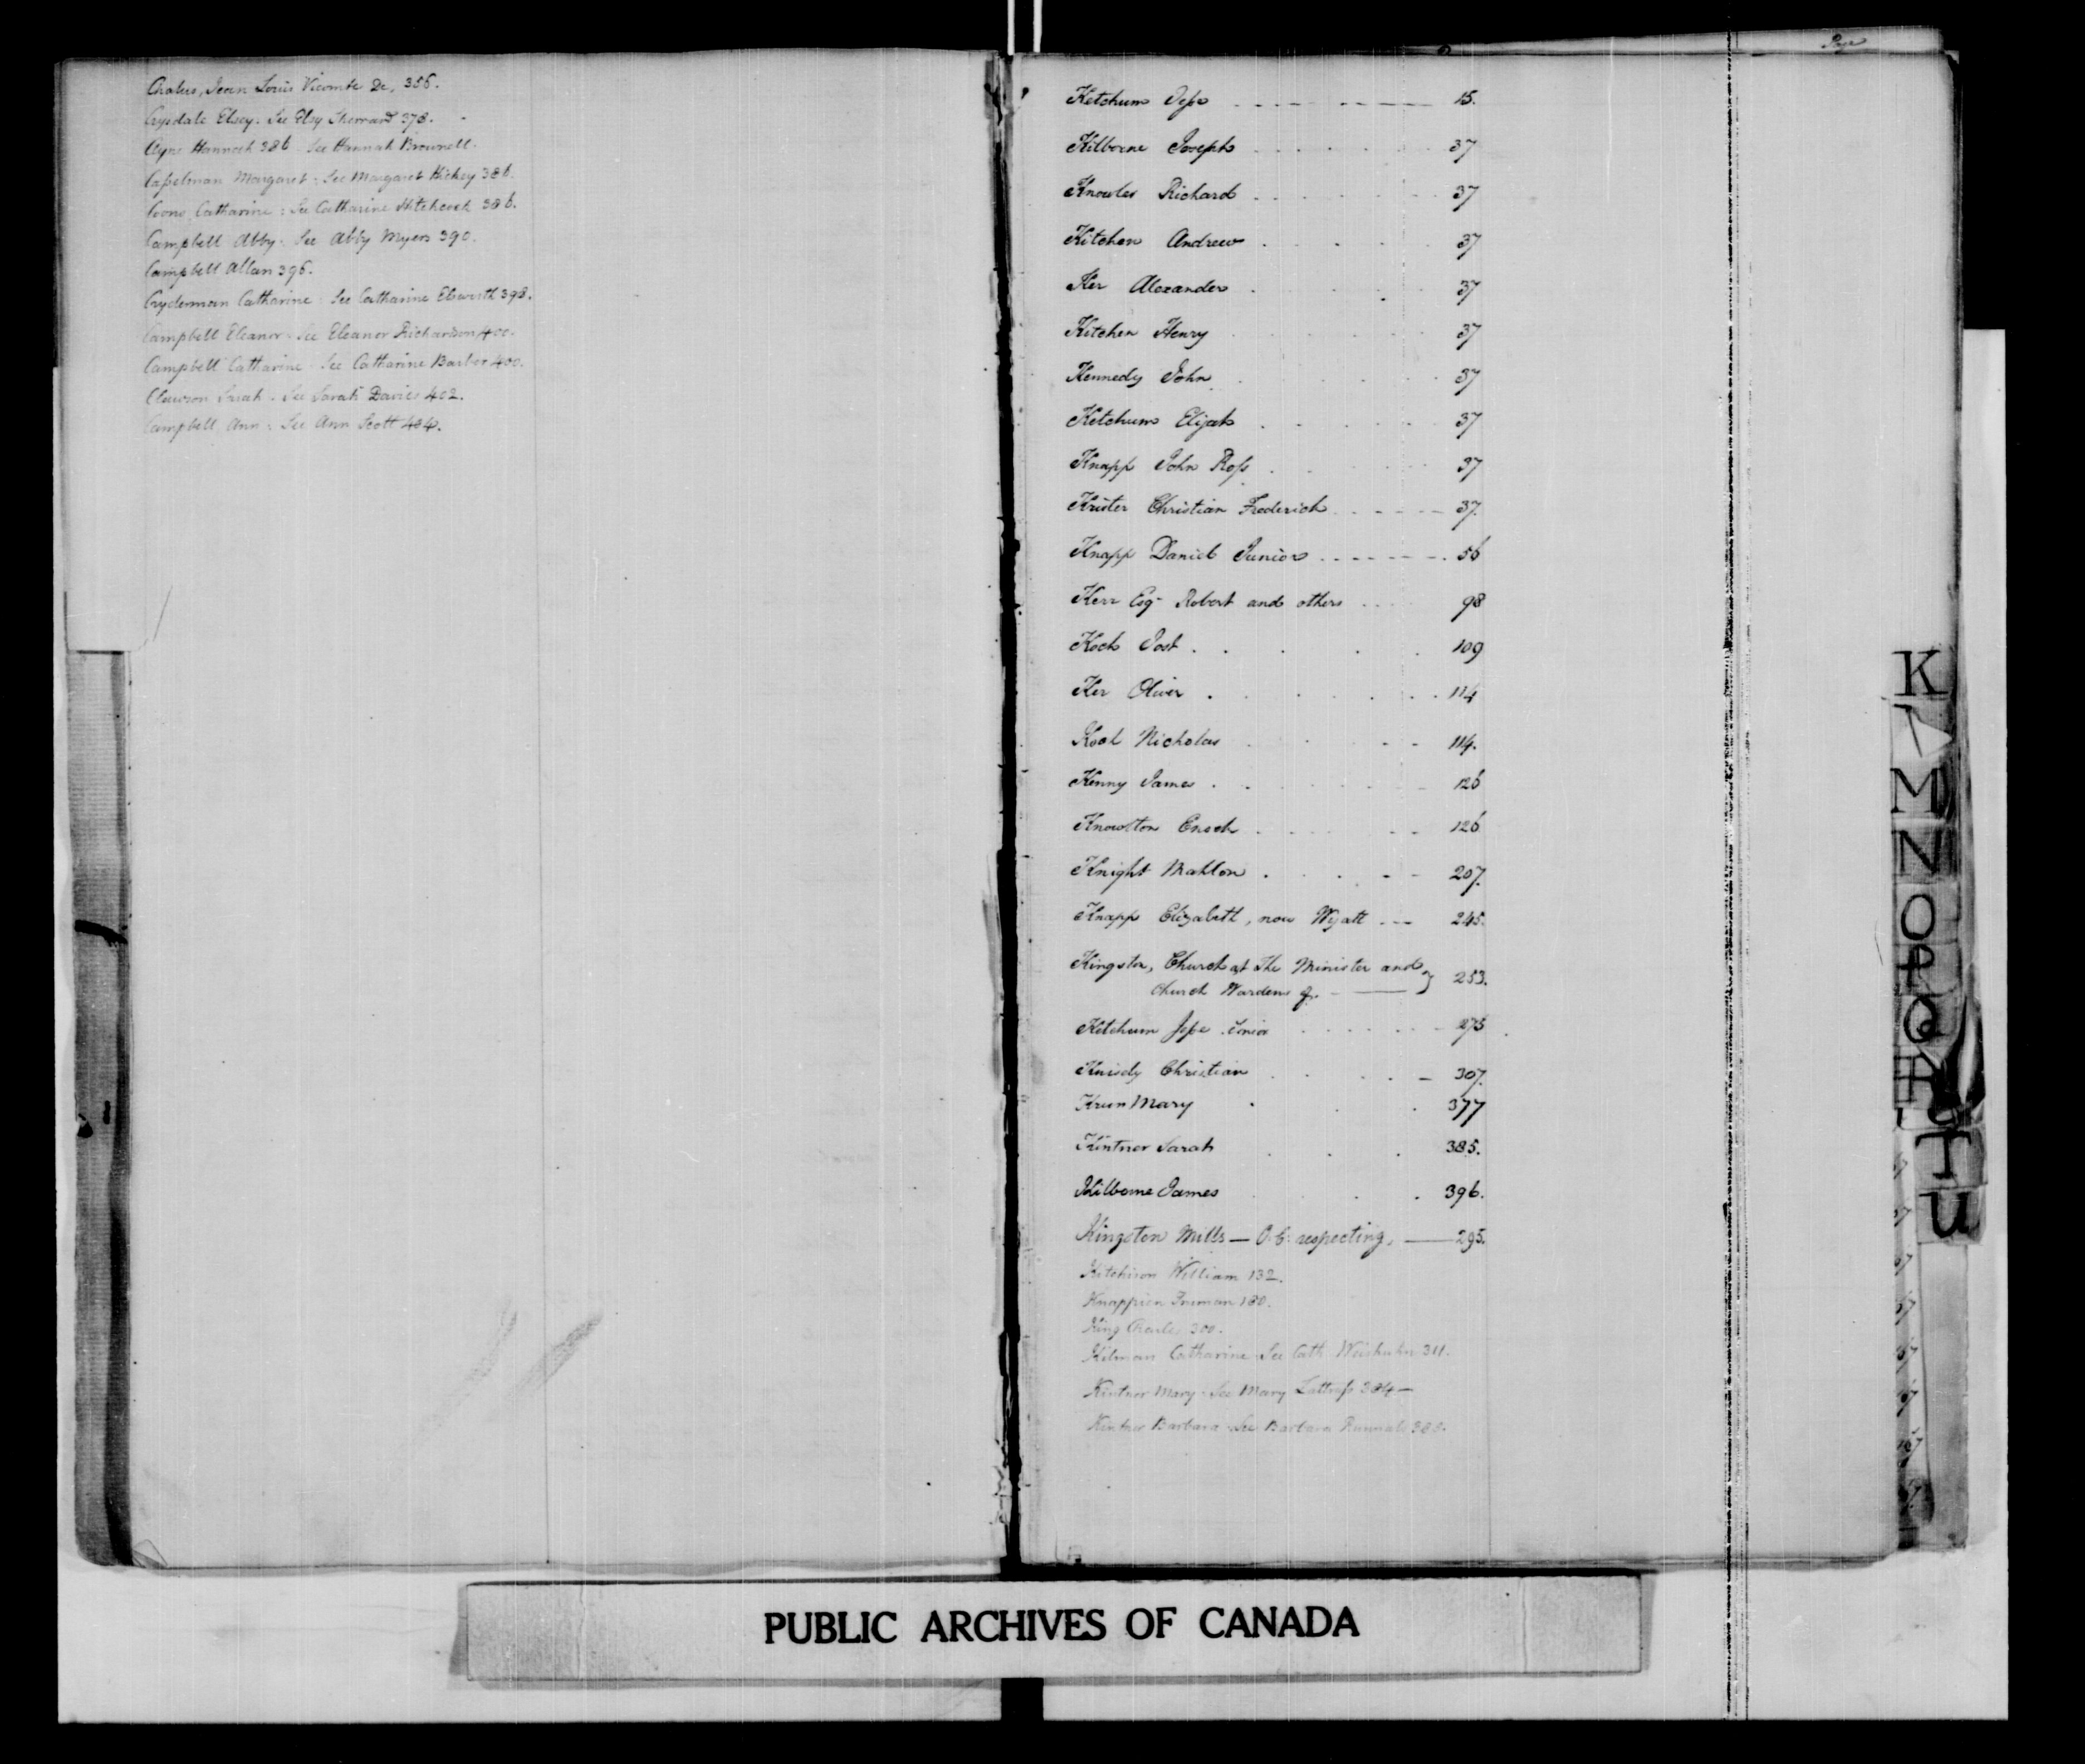 Chalus, Jean Louis Vicomte De, 356.
Crysdale Elsey. See Elsy Sherrard 378.
Cyne Hannah 386. See Hannah Brownell.
Caselman Margaret: See Margaret Hickey 386.
Coons Catharine: See Catharine Hitchcock 386.
Campbell Abby. See Abby Myers 390.
Campbell Allan 396.
Cryderman Catharine. See Catharine Elsworth 398.
Campbell Eleanor. See Eleanor Richardson 400.
Campbell Catharine. See Catharine Barber 400.
Clawson Sarah. See Sarah Davies 402.
Campbell Ann: See Ann Scott 404.
Page
Ketchum Jesse 15.
Kilborne Joseph 37
Knowles Richard 37
Kitchen Andrew 37
Ker Alexander 37
Kitchen Henry 37
Kennedy John 37
Ketchum Elijah 37
Knapp John Ross 37
Kuster Christian Frederick 37.
Knapp Daniel Junior 56
Kerr Esqr Robert and others 98
Koch Jost 109
Ker Oliver 114
Kool Nicholas 114.
Kenny James 126
Knowlton Enoch 126
Knight Mahlon 207.
Knapp Elizabeth, now Wyatt 245.
Kingston, Church at The Minister and
Church Wardens of 253.
Ketchum Jesse Senior 275
Knisely Christian 307.
Krun Mary 377
Kintner Sarah 385.
Kilborne James 396.
Kingston Mills — O.C. respecting, 295.
Kitchison William 132.
Knappien 180.
King Charles 300.
Kilman Catharine See Cath 311.
Kintner Mary. See Mary Lattross 384
Kintner Barbara See Barbara Runnals 388.
K
M
N
O
P
Q
R
T
U
PUBLIC ARCHIVES OF CANADA